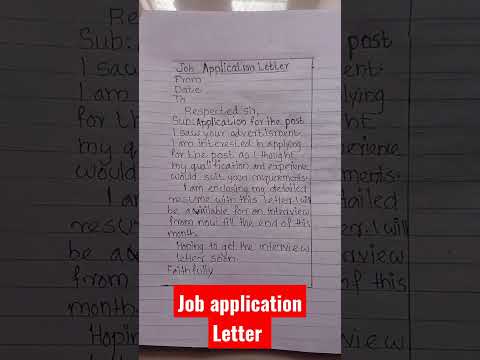 Job Application Letter
From
Date
To
Respected sir,
Sub: Application for the post
I saw your advertisment.
I am interested in applying
for the post as I thought
my qualification and experience
would suit your requirments.
I am enclosing my detailed
resume with this letter. I will
be available for an interview
from now till the end of this
month.
Hoping to get the interview
letter soon.
Faithfully
Job application
Letter